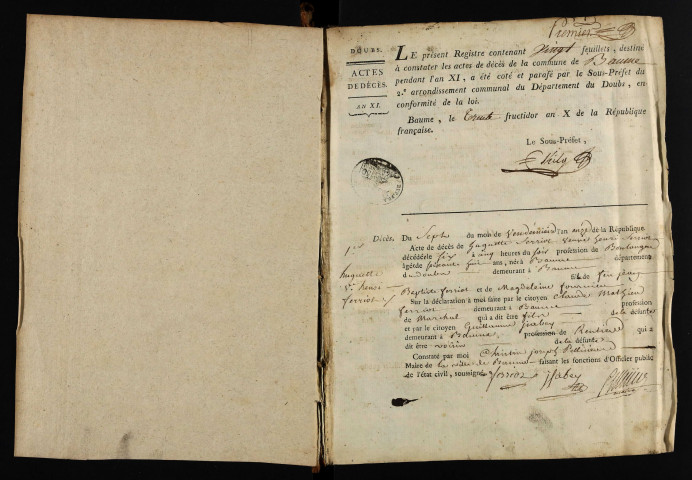 Premier
DOUBS.
ACTES
DE DÉCÈS.
AN XI.
LE présent Registre contenant Vingt feuillets, destiné
à constater les actes de décès de la commune de Baume
pendant l'an XI, a été coté et parafé par le Sous-Préfet du
2.e arrondissement communal du Département du Doubs, en
conformité de la loi.
Baume, le trente fructidor an X de la République
française.
Le Sous-Préfet,
Décès.
Du Sept du mois de Vendémiaire l'an onze de la République
Acte de décès de huguette ferriot veuve henri
décédée le six à cinq heures du soir profession de Boulangere
âgée de soixante huit ans, née à Baume département
du doubs demeurant à Baume fille de feu jean
Baptiste ferriot et de Magdeleine fournier
Sur la déclaration à moi faite par le citoyen Claude Mathieu
ferriot demeurant à Baume profession
de Marchal qui a dit être fils de la défunte
et par le citoyen Guillaume jabey
demeurant à Baume profession de Rentier qui a
dit être voisin de la défunte
Constaté par moi joseph
Maire de la ville de Baume faisant les fonctions d'Officier public
de l'état civil, soussigné ferriot jabey
1er
huguette
Ve henri
ferriot